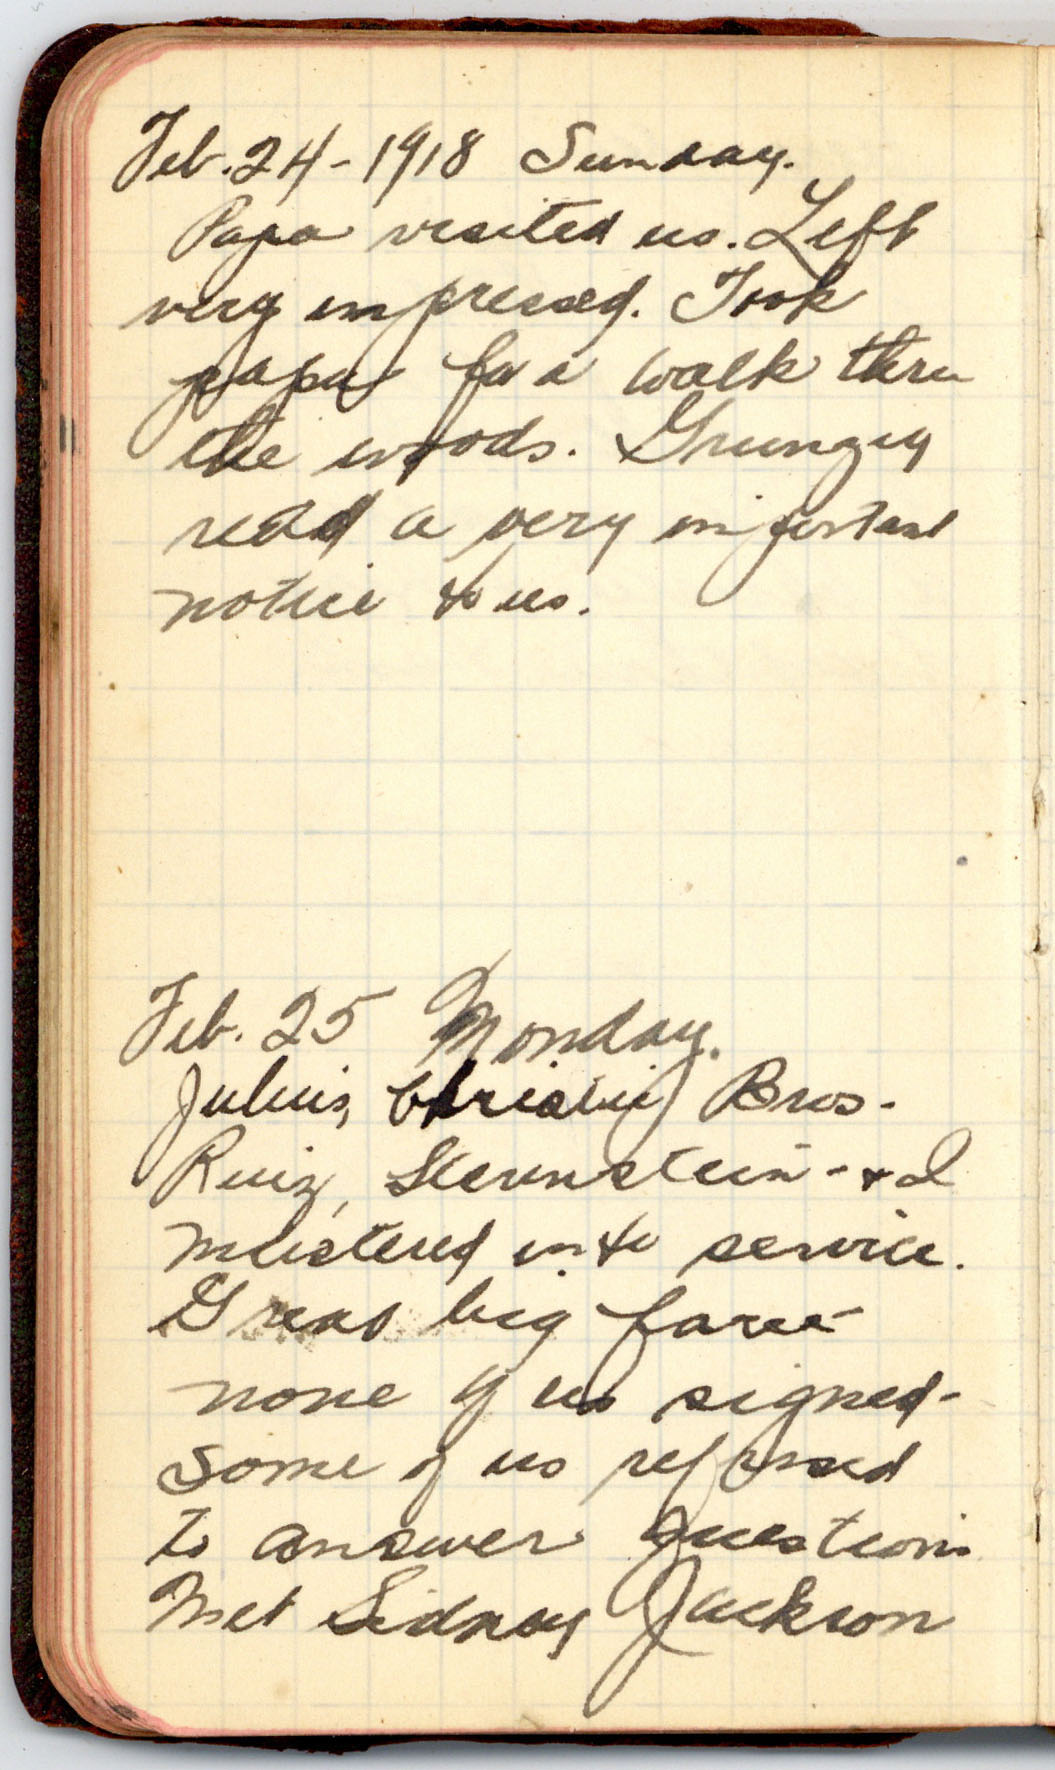 Feb. 24 - 1918 Sunday.
Papa visited us. Left
very impressed. Took
papa for a walk thru
the woods.
read a very important
notice to us.
Feb. 25 Monday.
Julius, Bros.
Ruiz, Sternstein - + I
mustered into service.
Great big farce -
none of us signed -
some of us refused
to answer questions
Met Sidney Jackson